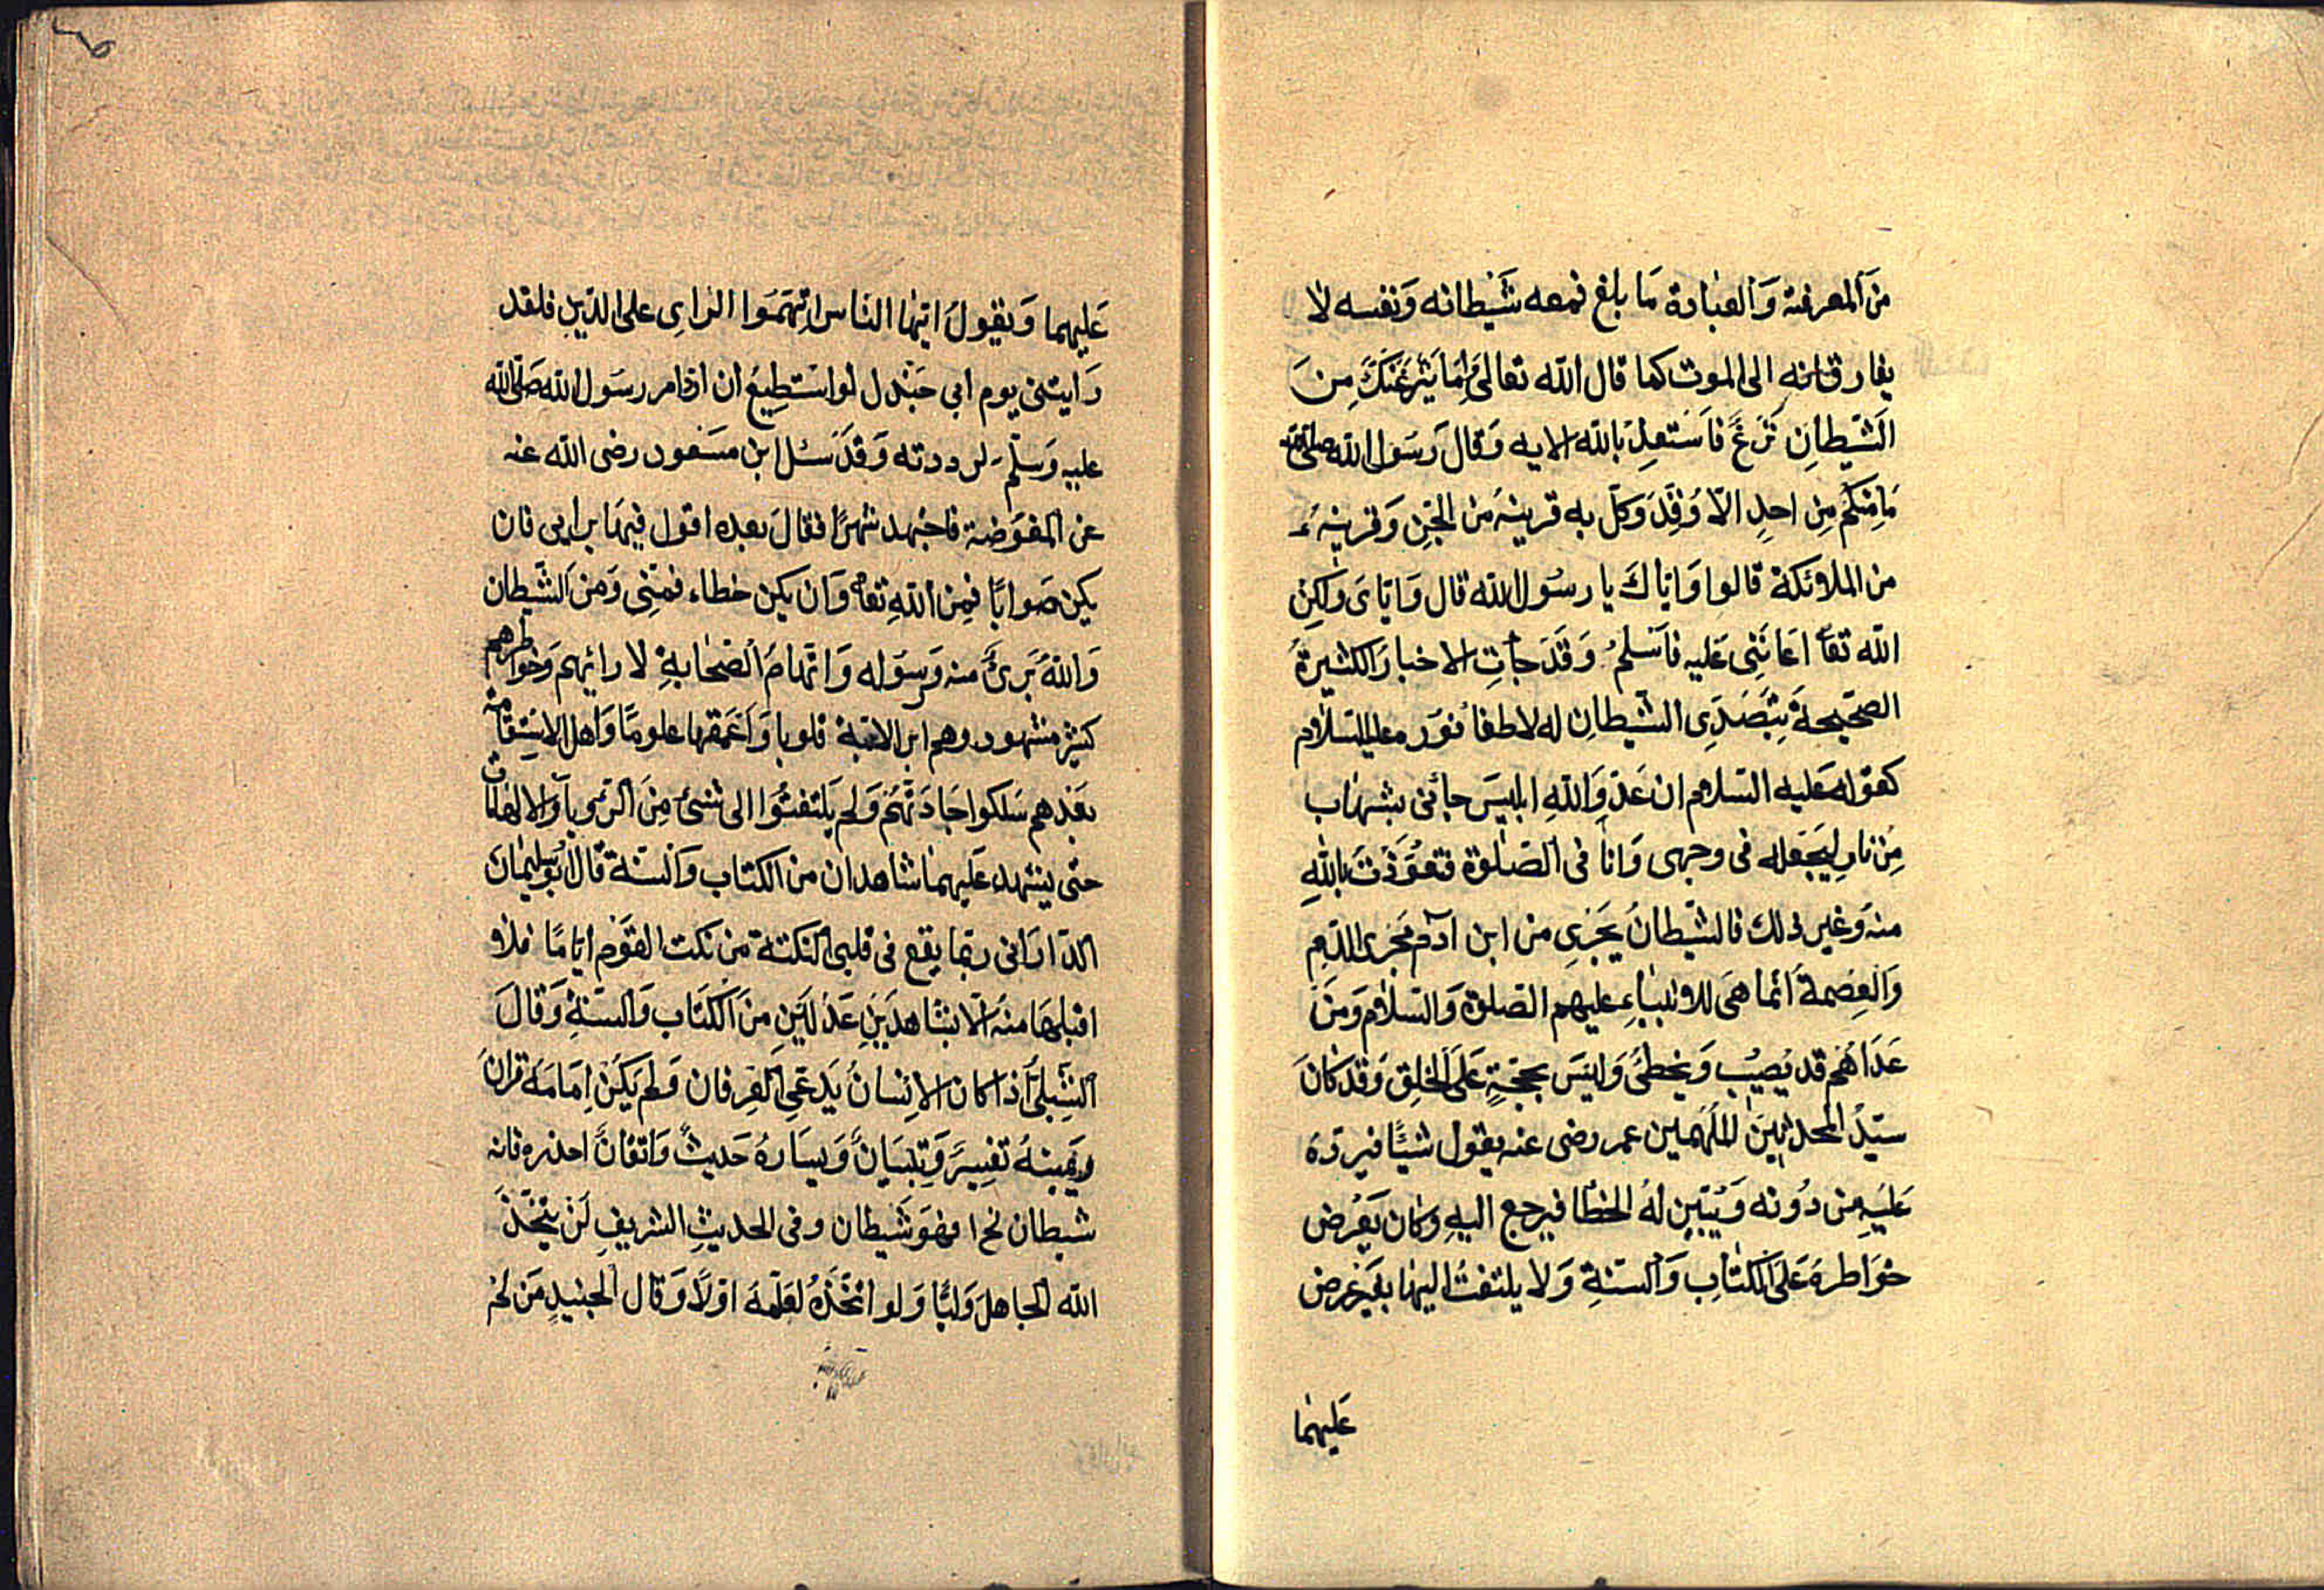 من المعرفة والعبادة ما بلغ فمعه شيطانه ونفسه لا
يفارقانه الى الموت كما قال الله تعالى واما ينزغنك من
الشيطان نزغ فاستعذ بالله الايه وقال رسول الله صلى الله
ما منكم من احد الا وقد وكل به قرينه من الجن وقرينه
من الملائكة قالوا واياك يا رسول الله قال واياى ولكن
الله تعا اعاننى عليه فاسلم وقد جأت الاخبار الكثيرة
الصحيحة بتصدى الشيطان له لاطفأ نوره عليه السلام
كقوله عليه السلام ان عدو الله ابليس جائنى بشهاب
من نار ليجعله فى وجهى وانا فى الصلوة فتعوذت بالله
منه وغير ذلك فالشيطان يجرى من ابن آدم مجرى الدم
والعصمة انما هى للانبياء عليهم الصلوة والسلام ومن
عداهم قد يصيب ويخطئ وليس بحجة على الخلق وقد كان
سيد المحدثين الملهمين عمر رضى عنه يقول شيئا فيرده
عليه من دونه ويتبين له الخطا فيرجع اليه وكان يعرض
خواطره على الكتاب والسنة ولا يلتفت اليها بغير عرض
عليهما
عليهما ويقول ايها الناس اتهموا الراى على الدين فلقد
رايتنى يوم ابي جندل لو استطيع ان ارد امر رسول الله صلى الله
عليه وسلم لرددته وقد سئل ابن مسعود رضى الله عنه
عن المفوضة فاجتهد شهرا فقال بعده اقول فيها برايى فان
يكن صوابا فمن الله تعا وان يكن خطاء فمنى ومن الشيطان
والله برئ منه ورسوله واتهام الصحابة لارائهم وخواطرهم
كثير مشهور وهم ابر الامة قلوبا واعمقها علوما واهل الاستقامة
بعدهم سلكوا جادتهم ولم يلتفتوا الى شئ من الرويا والالهامات
حتى يشهد عليهما شاهدان من الكتاب والسنة قال ابو سليمان
الدارانى ربما يقع فى قلبى النكتة من نكت القوم اياما فلا
اقبلها منه الا بشاهدين عدلين من الكتاب والسنة وقال
الشبلى اذا كان الانسان يدعى العرفان ولم يكن امامه قران
ويمينه تفسير وتبيان ويساره حديث واتقان احذره فانه
شيطان نح ا فهو شيطان وفى الحديث الشريف لن يتخذ
الله الجاهل وليا ولو اتخذه لعلمه اولا وقال الجنيد من لم